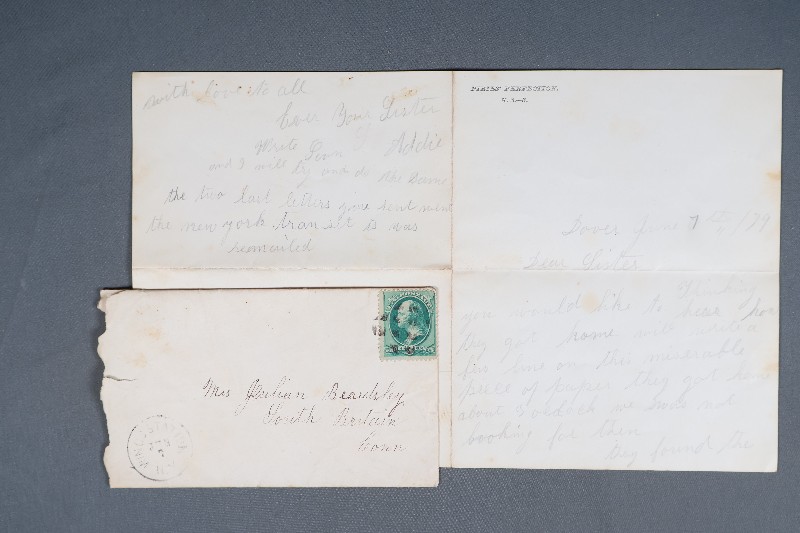 with love to all
Ever Your Sister
Addie
Write Soon
and I will try and do the Same
the two last letters you sent went
the new york transit is was
remailed
PARIAN PERFECTION.
Dover June 7 /79
Dear Sister
Thinking
you would like to hear
they got home will write a
few line on this miserable
piece of paper they got
about 5 oclock we was not
looking for them
found the
Mrs Julian Beardsley
South Britain
Conn